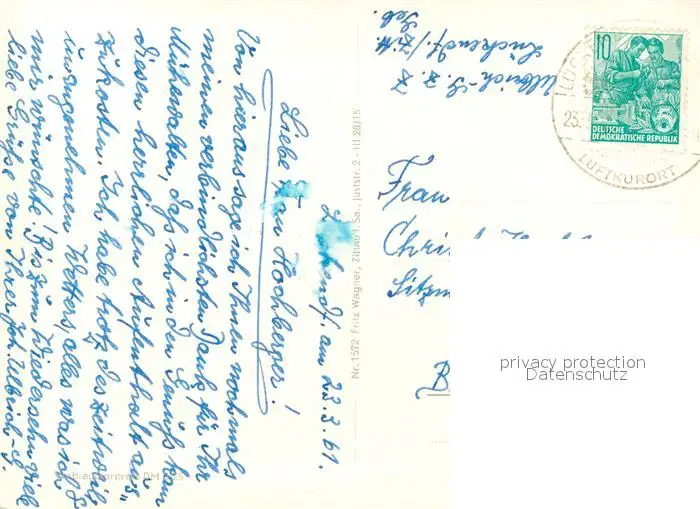 Lückendf, am 23.3.61.
Liebe Frau Hochberger!
Von hieraus sage ich Ihnen nochmals
meinen verbindlichsten Dank für Ihr
Müherwalten, daß ich in den Genuß kam
diesen herrlichen Aufenthalt aus"
zukosten. Ich habe trotz des zeitweis
unangenehmen Wetters, alles was ich
mir wünschte! Bis zum Wiedersehn viele
liebe Grüße von Ihrer Joh. Ulbrich-G.
DM
Nr. 1572 Fritz Wagner, Zittau i. Sa., Juststr. 2 - III 28/15
Ulbrich-G. z. Z.
Lückendf./ Z.
Geb.
10
5
DEUTSCHE
DEMOKRATISCHE REPUBLIK
23.
LUFTKURORT
Frau
B
privacy protection
Datenschutz